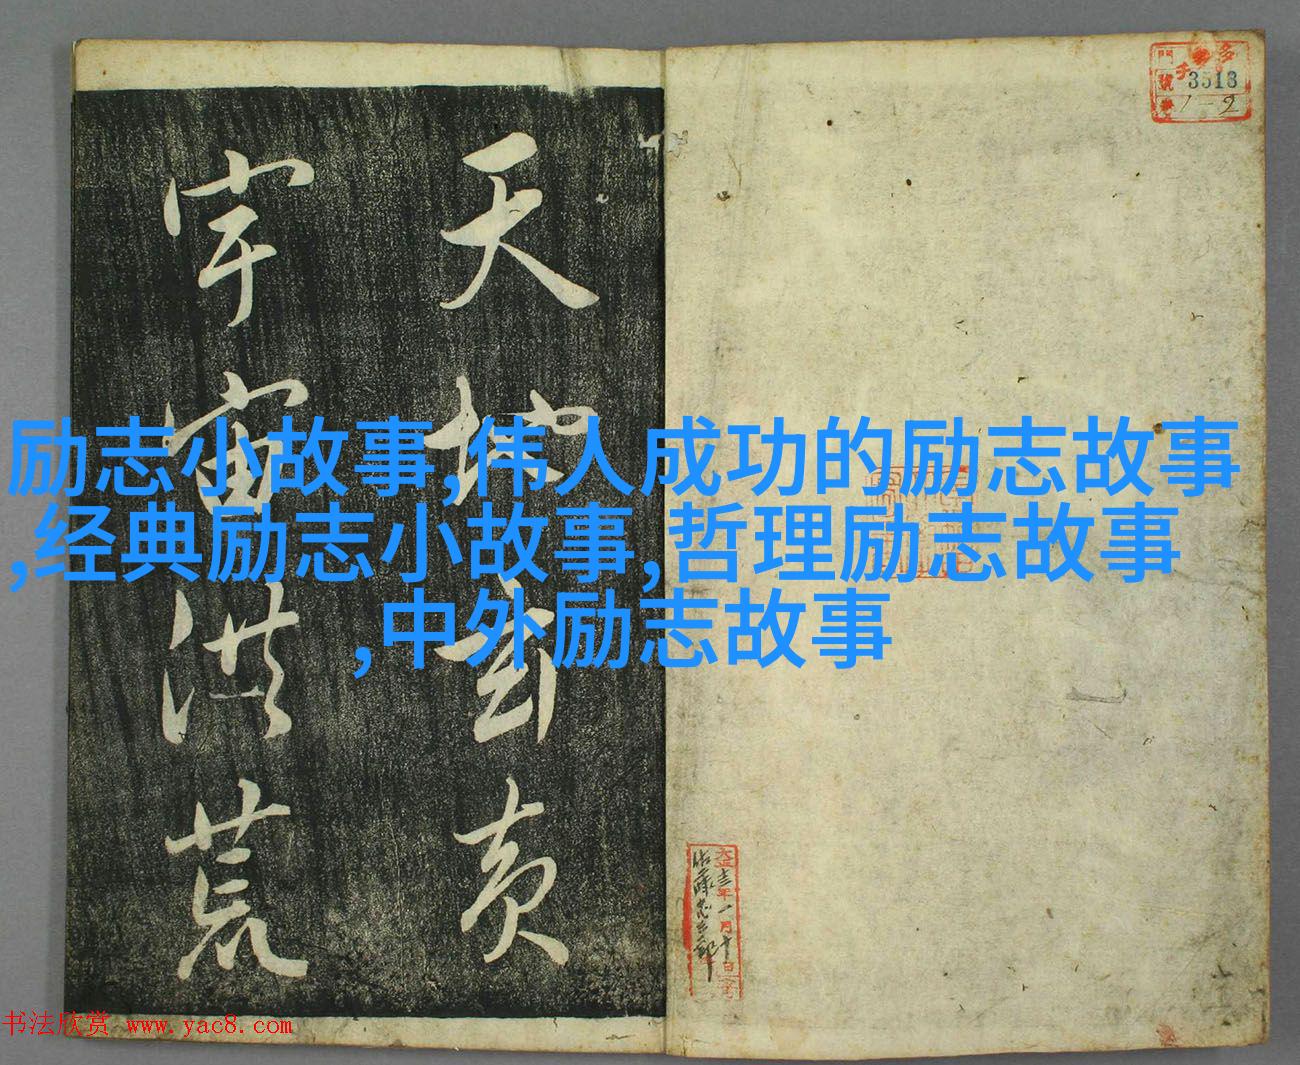 天地玄黄
宇宙洪荒
3513
1-2
励志小故事,伟人成功的励志故事
,经典励志小故事,哲理励志故事
,中外励志故事
书法欣赏 www.yac8.com